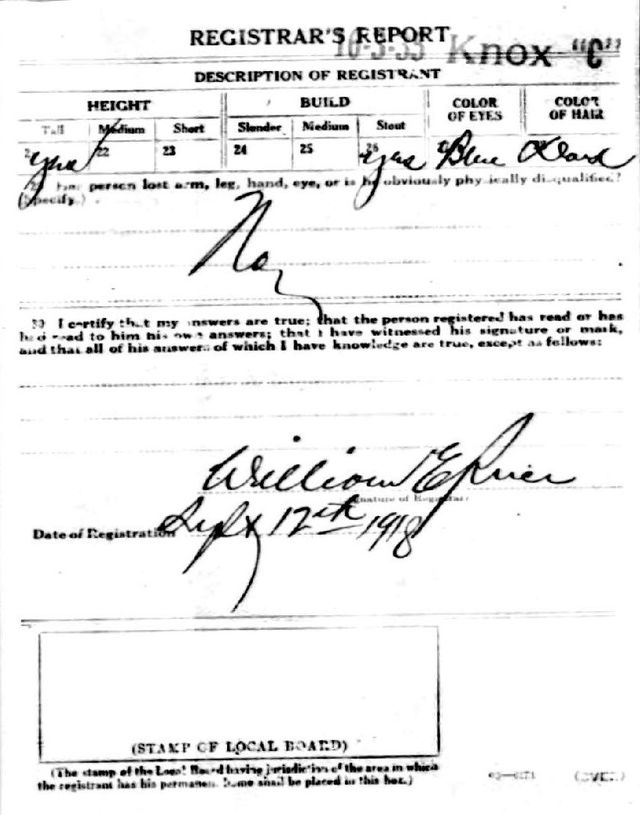 REGISTRAR'S REPORT
10-3-33 Knox "C"
DESCRIPTION OF REGISTRANT
HEIGHT BUILD COLOR OF EYES COLOR OF HAIR
Tall Medium Short Slender Medium Stout
yes 22 23 24 25 26 yes Blue
29 Has person lost arm, leg, hand, eye, or is he obviously physically disqualified?
(Specify.)
No
30 I certify that my answers are true; that the person registered has read or has
had read to him his own answers; that I have witnessed his signature or mark,
and that all of his answers of which I have knowledge are true, except as follows:
William E
Signature of Registrar
Date of Registration Sept 12th 1918
(STAMP OF LOCAL BOARD)
(The stamp of the Local Board having jurisdiction of the area in which
the registrant has his permanent home shall be placed in this box.)
(OVER)